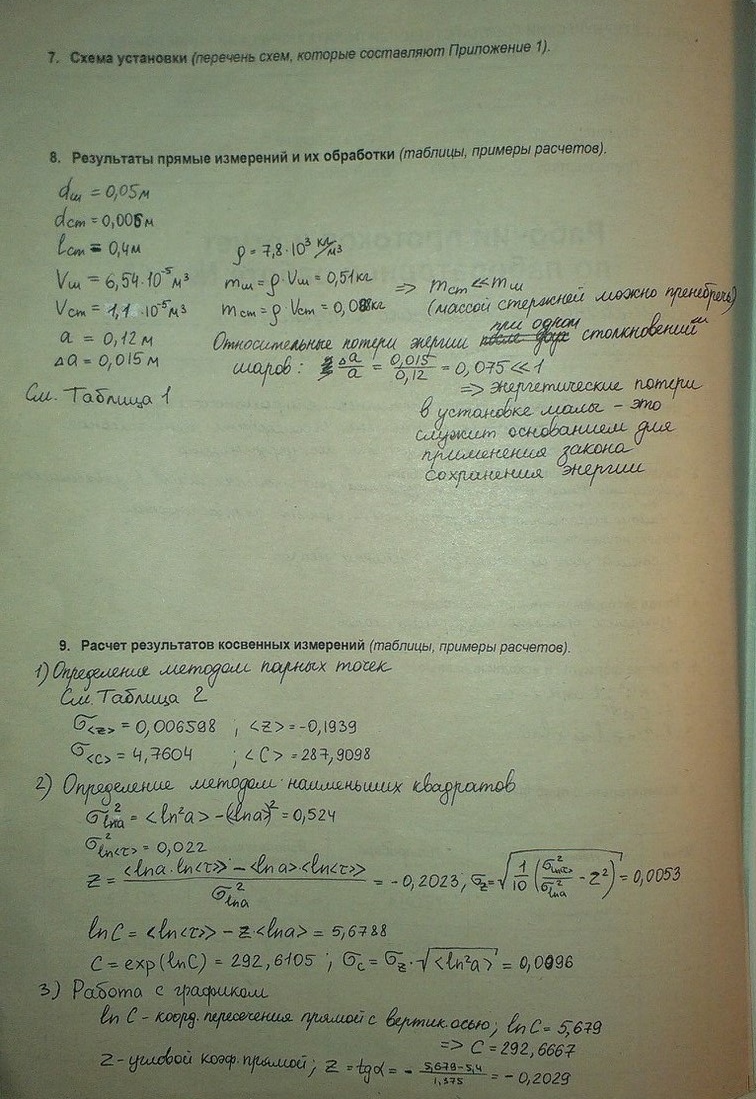 7. Схема установки (перечень схем, которые составляют Приложение 1).
8. Результаты прямые измерений и их обработки (таблицы, примеры расчетов).
dш = 0,05м
dст = 0,006м
lст = 0,4м ρ = 7,8·10³ кг/м³
Vш = 6,54·10⁻⁵м³ mш = ρ·Vш = 0,51кг => mст ≪ mш
Vст = 1,1·10⁻⁵м³ mст = ρ Vст = 0,08кг (массой стержней можно пренебречь)
a = 0,12м Относительные потери энергии при одном столкновений
Δa = 0,015м шаров: Δa/a = 0,015/0,12 = 0,075 ≪ 1
См. Таблица 1 => энергетические потери
в установке малы – это
служит основанием для
применения закона
сохранения энергии
9. Расчет результатов косвенных измерений (таблицы, примеры расчетов).
1) Определение методом парных точек
См. Таблица 2
σ<z> = 0,006598 ; <z> = -0,1939
σ<C> = 4,7604 ; <C> = 287,9098
2) Определение методом наименьших квадратов
σ²lna = <ln²a> - (lna)² = 0,524
σ²ln<τ> = 0,022
z = (<lna·ln<τ>> - <lna><ln<τ>>)/σ²lna = -0,2023, σz = √(1/10 (σ²ln<τ>/σ²lna - z²)) = 0,0053
lnC = <ln<τ>> - z<lna> = 5,6788
C = exp(lnC) = 292,6105 ; σc = σz·√<ln²a> = 0,0096
3) Работа с графиком
ln C - коорд. пересечения прямой с вертик. осью; lnC = 5,679
=> C = 292,6667
z - угловой коэф. прямой; z = tgα = - (5,679-5,4)/1,375 = -0,2029